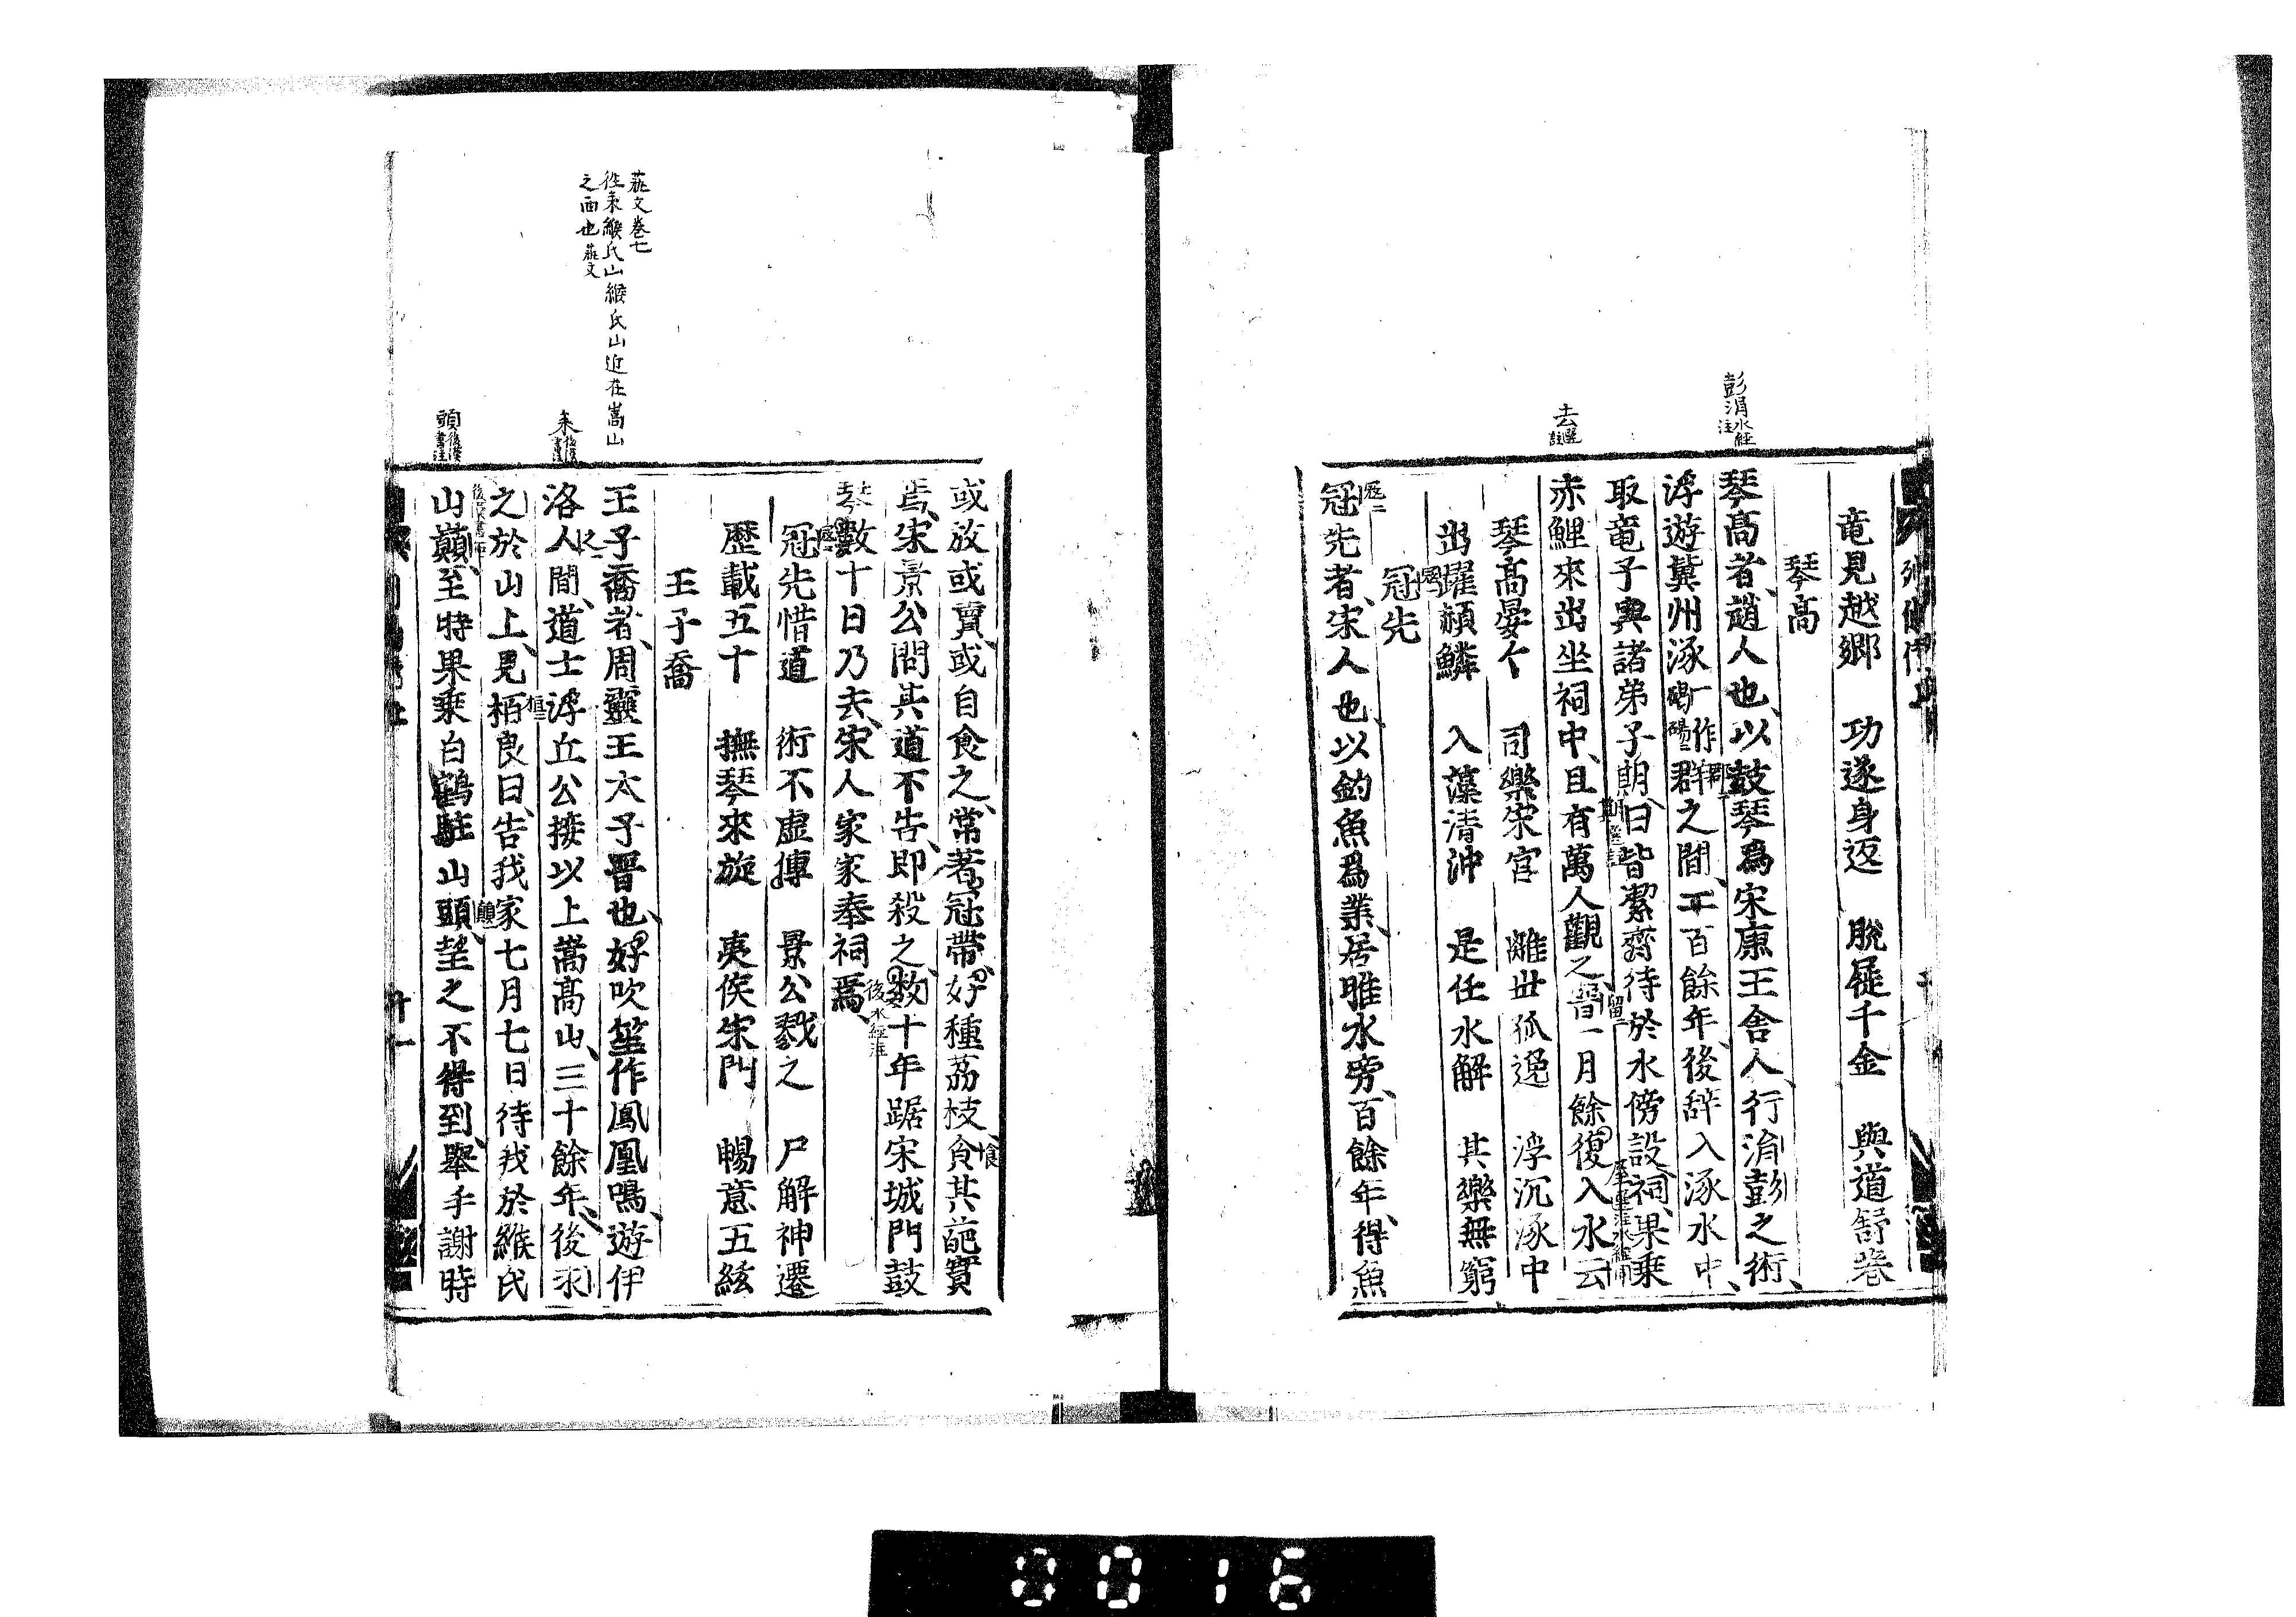 竜見越鄉　功遂身返　脫屣千金　與道舒卷
琴高
琴高者、趙人也、以鼓琴爲宋康王舍人、行涓彭之術、
浮遊冀州涿一作碭群之間、二百餘年、後辞入涿水中、
取竜子與諸弟子期曰皆潔齋待於水傍設祠、果乗
赤鯉來出坐祠中、且有萬人觀之、留一月餘復入水云
琴高晏々　司樂宋宮　離世孤逸　浮沉涿中
出躍頳鱗　入藻清沖　是任水解　其樂無窮
冠先
冠先者、宋人也、以釣魚爲業、居睢水旁、百餘年、得魚
彭涓水經注
去選註
或放或賣、或自食之、常著冠帶、好種荔枝、食其葩實
焉、宋景公問其道不告、即殺之、数十年踞宋城門鼓
琴數十日乃去、宋人家家奉祠焉、
冠先惜道　術不虛傳　景公戮之　尸解神遷
歷載五十　撫琴來旋　夷俟宋門　暢意五絃
王子喬
王子喬者、周靈王太子晋也、好吹笙作鳳凰鳴、遊伊
洛人間、道士浮丘公接以上嵩高山、三十餘年、後求
之於山上、見栢良曰、告我家七月七日待我於緱氏
山巔、至時果乗白鶴駐山頭、望之不得到、舉手謝時
後水經注
藝文卷七
往来緱氏山緱氏山近在嵩山
之西也藝文
来後漢書注
頭後漢書注
0016